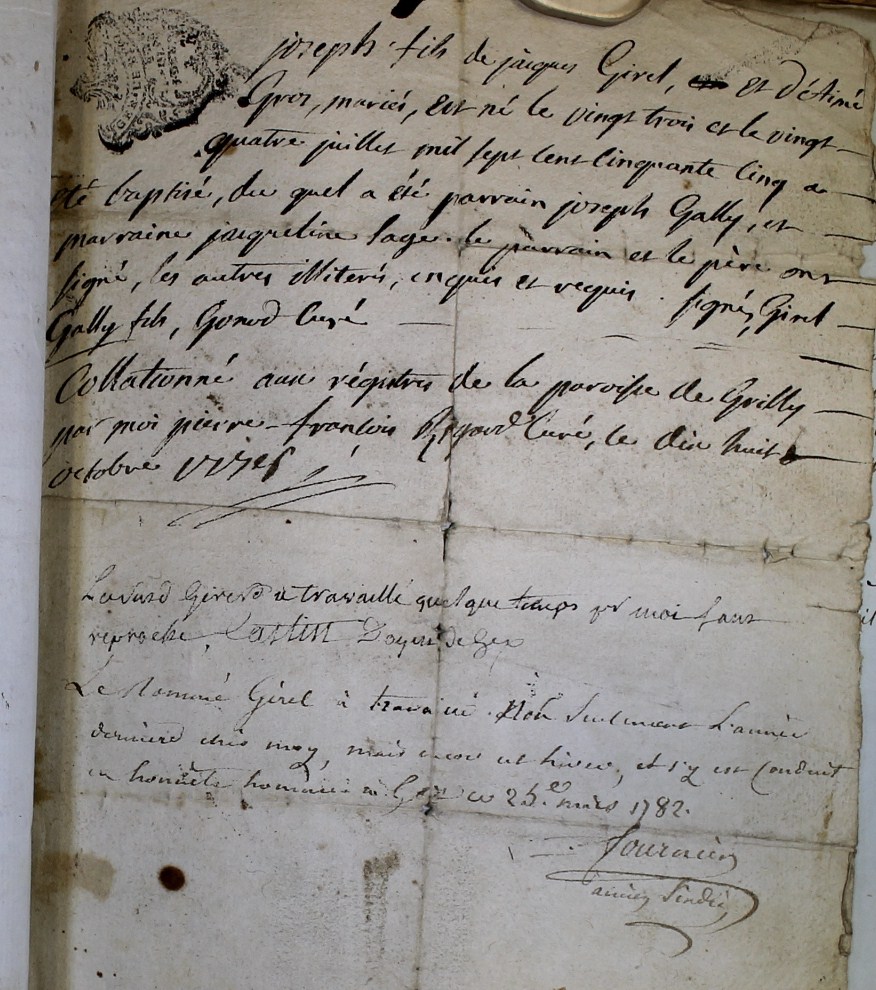 joseph fils de jacques Girel, et d'étiné
Gros, mariés, est né le vingt trois et le vingt
quatre juillet mil sept cent cinquante cinq a
été baptisé, du quel a été parrain joseph Gally, et
marraine jacqueline Sage. le parrain et le père ont
signé, les autres illiterés, enquis et requis. signés, Girel
Gally fils, Gonod Curé
Collationné aux régistres de la paroisse de Grilly
par moi pierre-francois Curé, le dix huit
octobre
Girerd a travaillé quelque temps pr moi sans
reproche, Castin Doyen de Gex
Le Nommé Girel à travaillé Non Seulement L'année
derniere chés moy, mais encore cet hiver, et s'y est Conduit
en honnète homme à Gex ce 25e mars 1782.
fournier
ancien Sindic